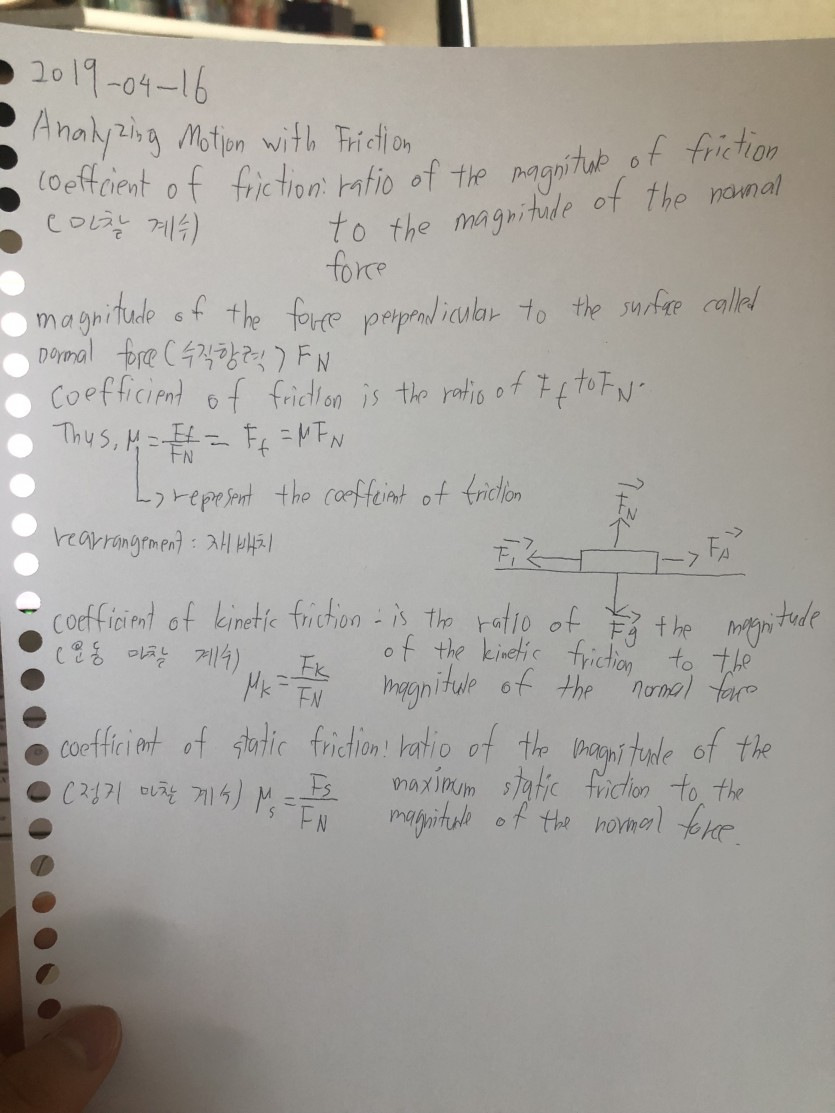 2019-04-16
Analyzing Motion with Friction
coeffcient of friction: ratio of the magnitude of friction
(마찰 계수) to the magnitude of the normal
force
magnitude of the force perpendicular to the surface called
normal force (수직항력) FN
coefficient of friction is the ratio of Ff to FN.
Thus, μ = Ff/FN = Ff = μFN
↳ represent the coeffcient of friction
FN
rearrangement : 재배치
Ff FA
Fg
coefficient of kinetic friction - is the ratio of the magnitude
(운동 마찰 계수) of the kinetic friction to the
μk = Fk/FN magnitude of the normal force
coefficient of static friction: ratio of the magnitude of the
(정지 마찰 계수) μs = Fs/FN maximum static friction to the
magnitude of the normal force.